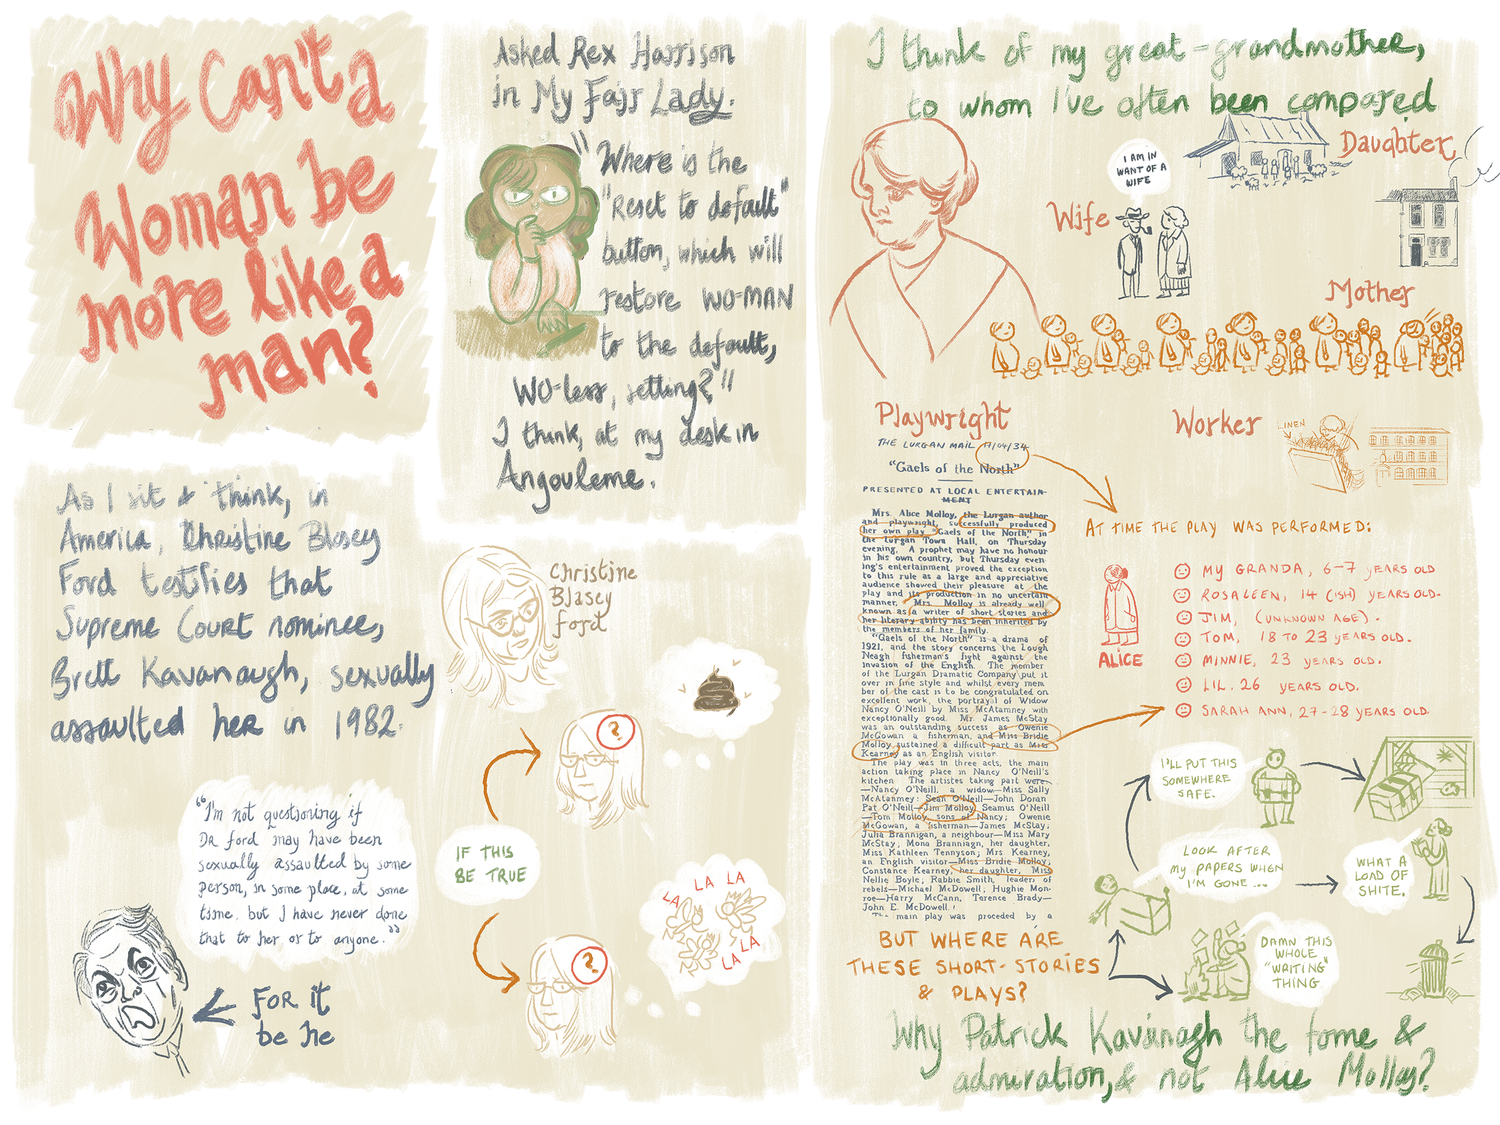 Why Can't a
Woman be
more like a
man?
Asked Rex Harrison
in My Fair Lady.
"Where is the
"Reset to default"
button, which will
restore WO-MAN
to the default,
WO-less, setting?"
I think, at my desk in
Angouleme.
As I sit & think, in
America, Christine Blasey
Ford testifies that
Supreme Court nominee,
Brett Kavanaugh, sexually
assaulted her in 1982.
"I'm not questioning if
Dr Ford may have been
sexually assaulted by some
person, in some place, at some
time. but I have never done
that to her or to anyone."
FOR it
be he
Christine
Blasey
Ford
IF THIS
BE TRUE
?
?
LA LA LA
LA
LA
I think of my great-grandmother,
to whom I've often been compared
Daughter
I AM IN
WANT OF A
WIFE
Wife
Mother
Playwright
Worker
LINEN
THE LURGAN MAIL 17/04/34
"Gaels of the North"
PRESENTED AT LOCAL ENTERTAIN-
MENT
Mrs. Alice Molloy, the Lurgan author
and playwright, successfully produced
her own play "Gaels of the North," in
the Lurgan Town Hall, on Thursday
evening. A prophet may have no honour
in his own country, but Thursday even-
ing's entertainment proved the exception
to this rule as a large and appreciative
audience showed their pleasure at the
play and its production in no uncertain
manner. Mrs. Molloy is already well
known as a writer of short stories and
her literary ability has been inherited by
the members of her family.
"Gaels of the North" is a drama of
1921, and the story concerns the Lough
Neagh fisherman's fight against the
invasion of the English. The member
of the Lurgan Dramatic Company put it
over in fine style and whilst every mem
ber of the cast is to be congratulated on
excellent work, the portrayal of Widow
Nancy O'Neill by Miss McAtamney with
exceptionally good. Mr. James McStay
was an outstanding success as Owenie
McGowan a fisherman, and Miss Bridie
Molloy sustained a difficult part as Miss
Kearney as an English visitor.
The play was in three acts, the main
action taking place in Nancy O'Neill's
kitchen. The artistes taking part were
—Nancy O'Neill, a widow—Miss Sally
McAtamney; Sean O'Neill—John Doran
Pat O'Neill—Jim Molloy, Seamus O'Neill
—Tom Molloy, sons of Nancy; Owenie
McGowan, a fisherman—James McStay;
Julia Brannigan, a neighbour—Miss Mary
McStay; Mona Branniagn, her daughter,
Miss Kathleen Tennyson; Mrs. Kearney,
an English visitor—Miss Bridie Molloy;
Constance Kearney, her daughter, Miss
Nellie Boyle; Rabbie Smith, leader of
rebels—Michael McDowell; Hughie Mon-
roe—Harry McCann, Terence Brady—
John E. McDowell.
The main play was proceded by a
AT TIME THE PLAY WAS PERFORMED:
ALICE
MY GRANDA, 6-7 YEARS OLD
ROSALEEN, 14 (ISH) YEARS OLD.
JIM, (UNKNOWN AGE).
TOM, 18 TO 23 YEARS OLD.
MINNIE, 23 YEARS OLD.
LIL. 26 YEARS OLD.
SARAH ANN, 27-28 YEARS OLD.
BUT WHERE ARE
THESE SHORT-STORIES
& PLAYS?
I'LL PUT THIS
SOMEWHERE
SAFE.
LOOK AFTER
MY PAPERS WHEN
I'M GONE...
WHAT A
LOAD OF
SHITE.
DAMN THIS
WHOLE
"WRITING"
THING.
Why Patrick Kavanagh the fame &
admiration, & not Alice Molloy?